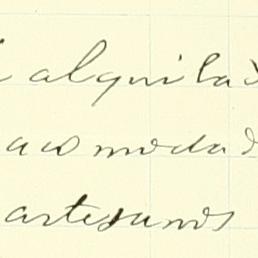 alquila
acomoda
artesanos